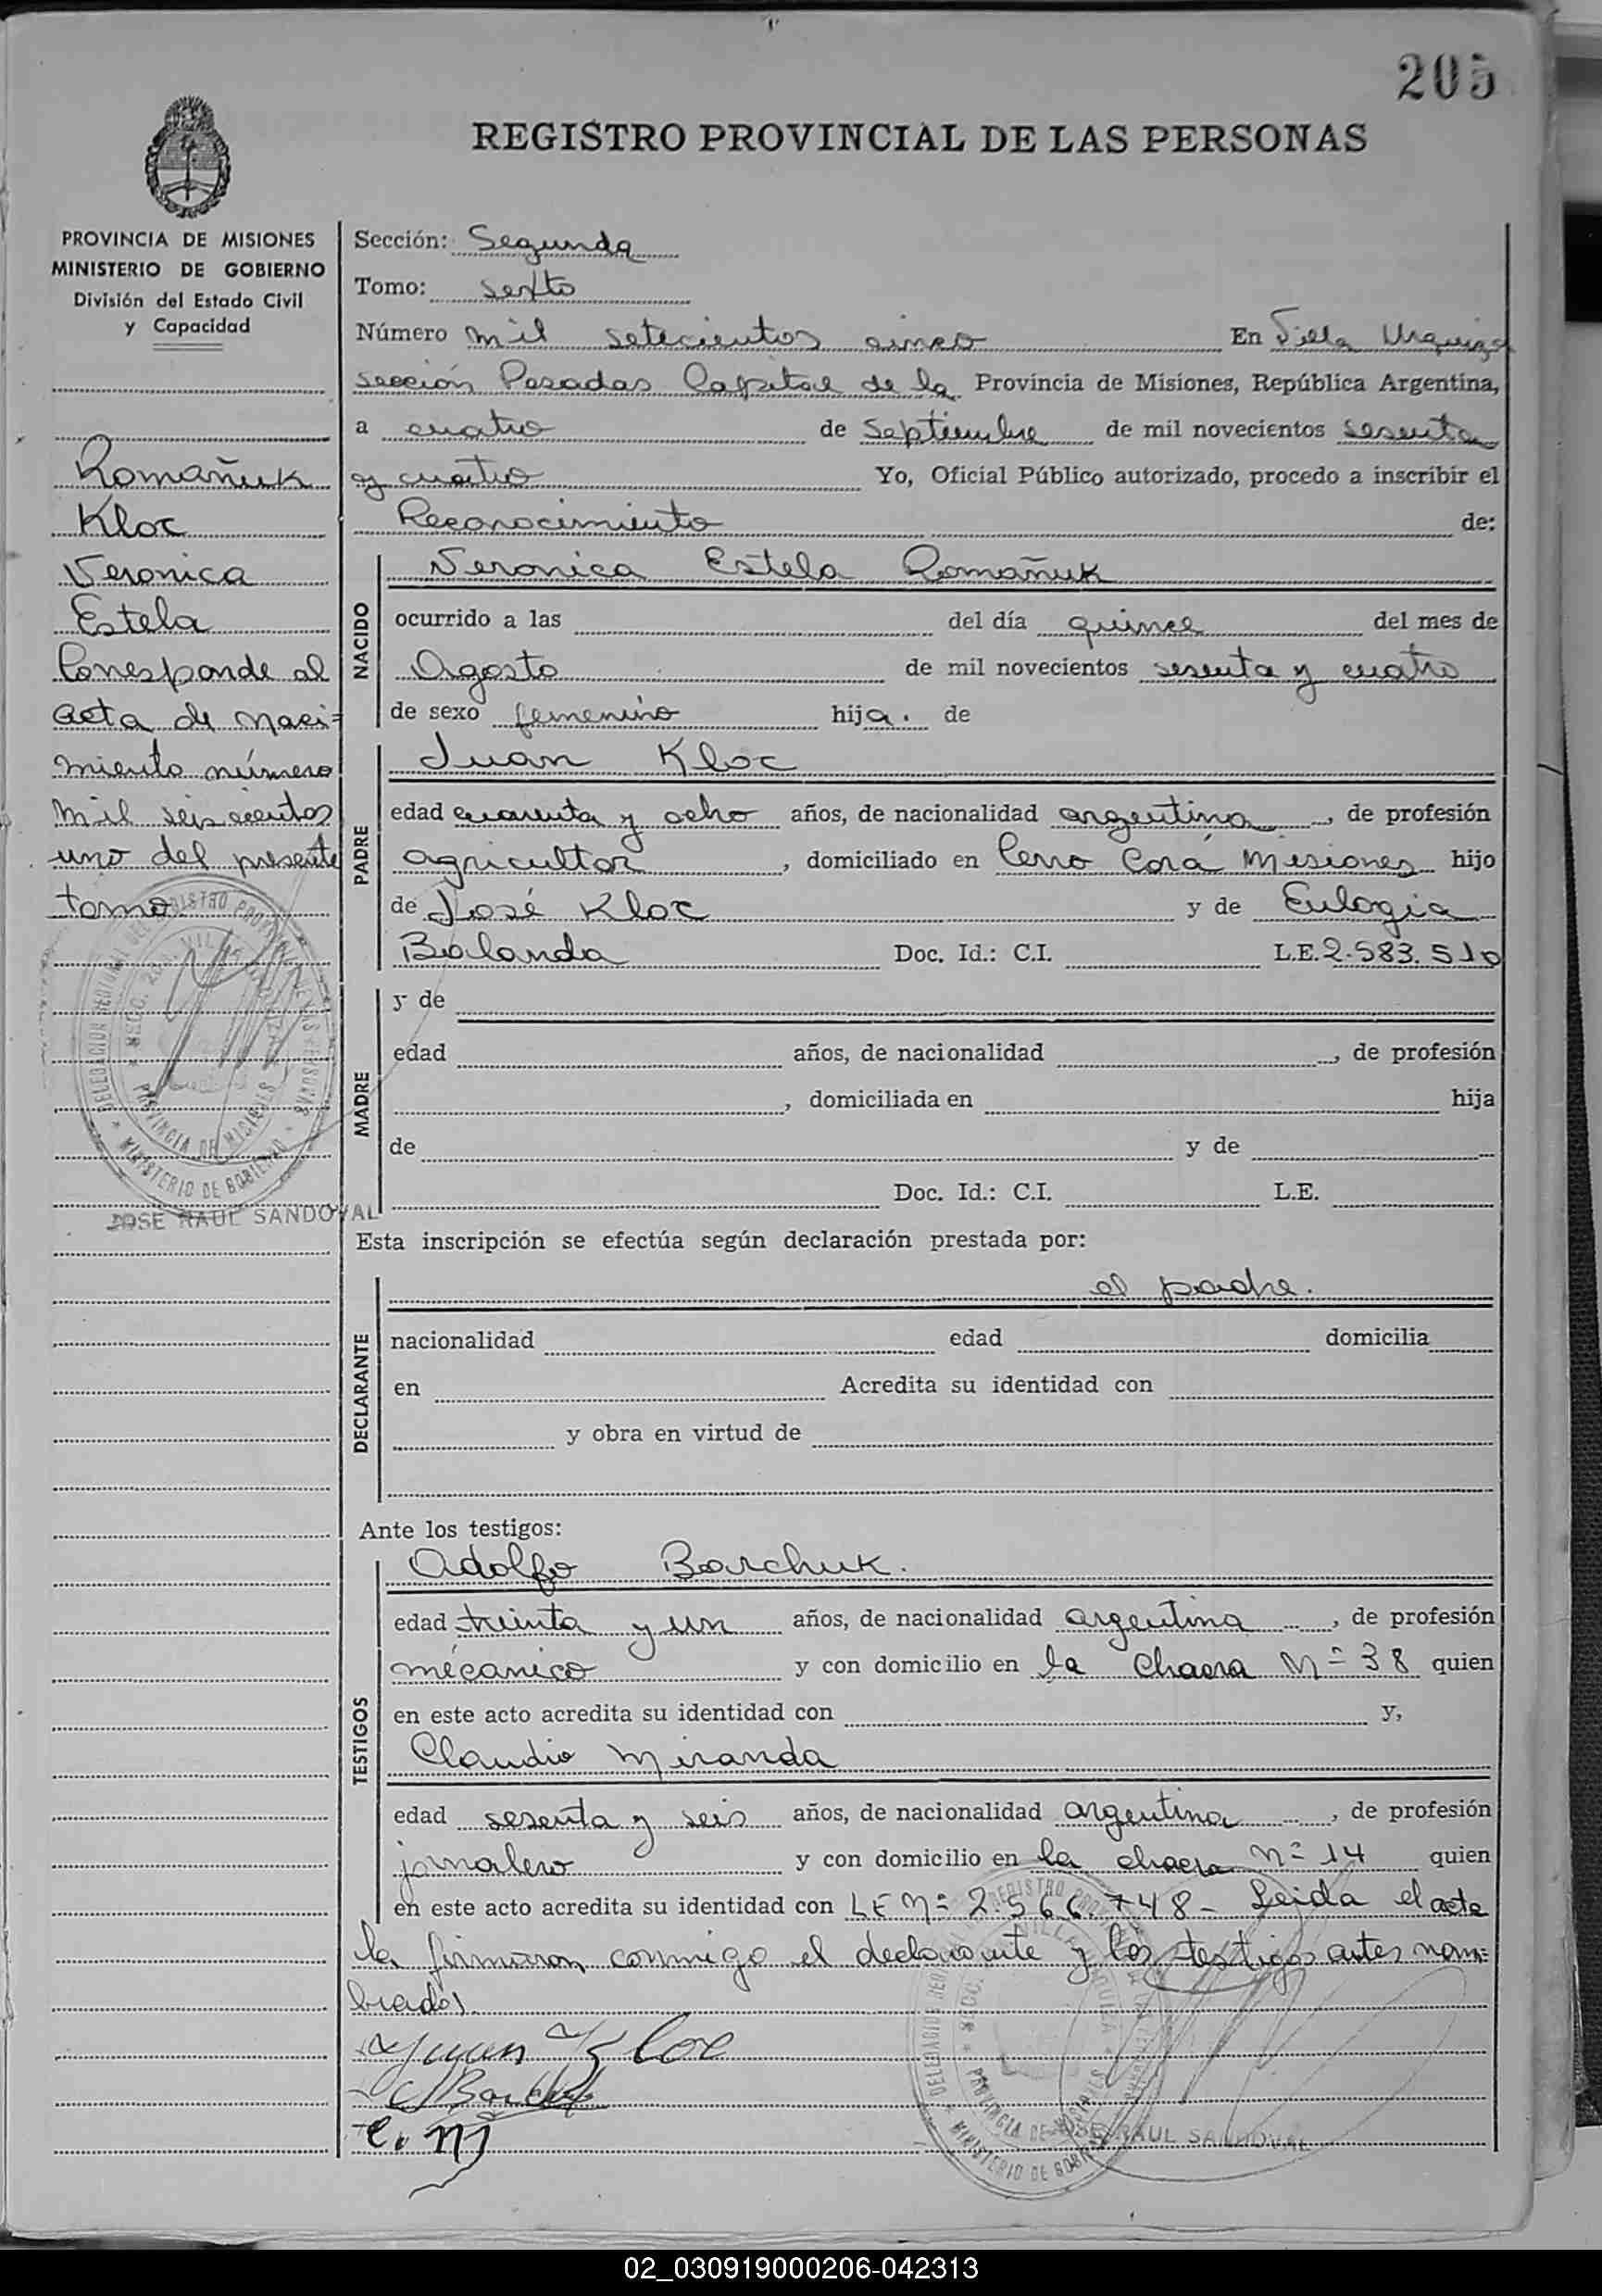 205
REGISTRO PROVINCIAL DE LAS PERSONAS
PROVINCIA DE MISIONES
MINISTERIO DE GOBIERNO
División del Estado Civil
y Capacidad
Romañuk
Kloc
Veronica
Estela
Corresponde al
acta de naci-
miento número
mil seis cientos
uno del presente
tomo
DELEGACION REGIONAL DEL REGISTRO PROVINCIAL DE LAS PERSONAS
SECC. 2da. VILLA URQUIZA
PROVINCIA DE MISIONES
MINISTERIO DE GOBIERNO
JOSE RAUL SANDOVAL
Sección: Segunda
Tomo: sexto
Número mil setecientos cinco En Villa Urquiza
sección Posadas Capital de la Provincia de Misiones, República Argentina,
a cuatro de Septiembre de mil novecientos sesenta
y cuatro Yo, Oficial Público autorizado, procedo a inscribir el
Reconocimiento de:
NACIDO
Veronica Estela Romañuk
ocurrido a las del día quince del mes de
Agosto de mil novecientos sesenta y cuatro
de sexo femenino hija. de
PADRE
Juan Kloc
edad cuarenta y ocho años, de nacionalidad argentina, de profesión
agricultor, domiciliado en Cerro Corá Misiones hijo
de José Kloc y de Eulogia
Bolanda Doc. Id.: C.I. L.E. 2.583.510
MADRE
y de
edad años, de nacionalidad , de profesión
, domiciliada en hija
de y de
Doc. Id.: C.I. L.E.
Esta inscripción se efectúa según declaración prestada por:
DECLARANTE
el padre.
nacionalidad edad domicilia
en Acredita su identidad con
y obra en virtud de
Ante los testigos:
TESTIGOS
Adolfo Barchuk.
edad treinta y un años, de nacionalidad argentina, de profesión
mécanico y con domicilio en la Chacra Nº 38 quien
en este acto acredita su identidad con y,
Claudio Miranda
edad sesenta y seis años, de nacionalidad argentina, de profesión
jornalero y con domicilio en la chacra Nº 14 quien
en este acto acredita su identidad con LE Nº 2.566.748- Leida el acta
la firmaron conmigo el declarante y los testigos antes nom=
brados
Juan Kloc
C. M
JOSE RAUL SANDOVAL
02_030919000206-042313